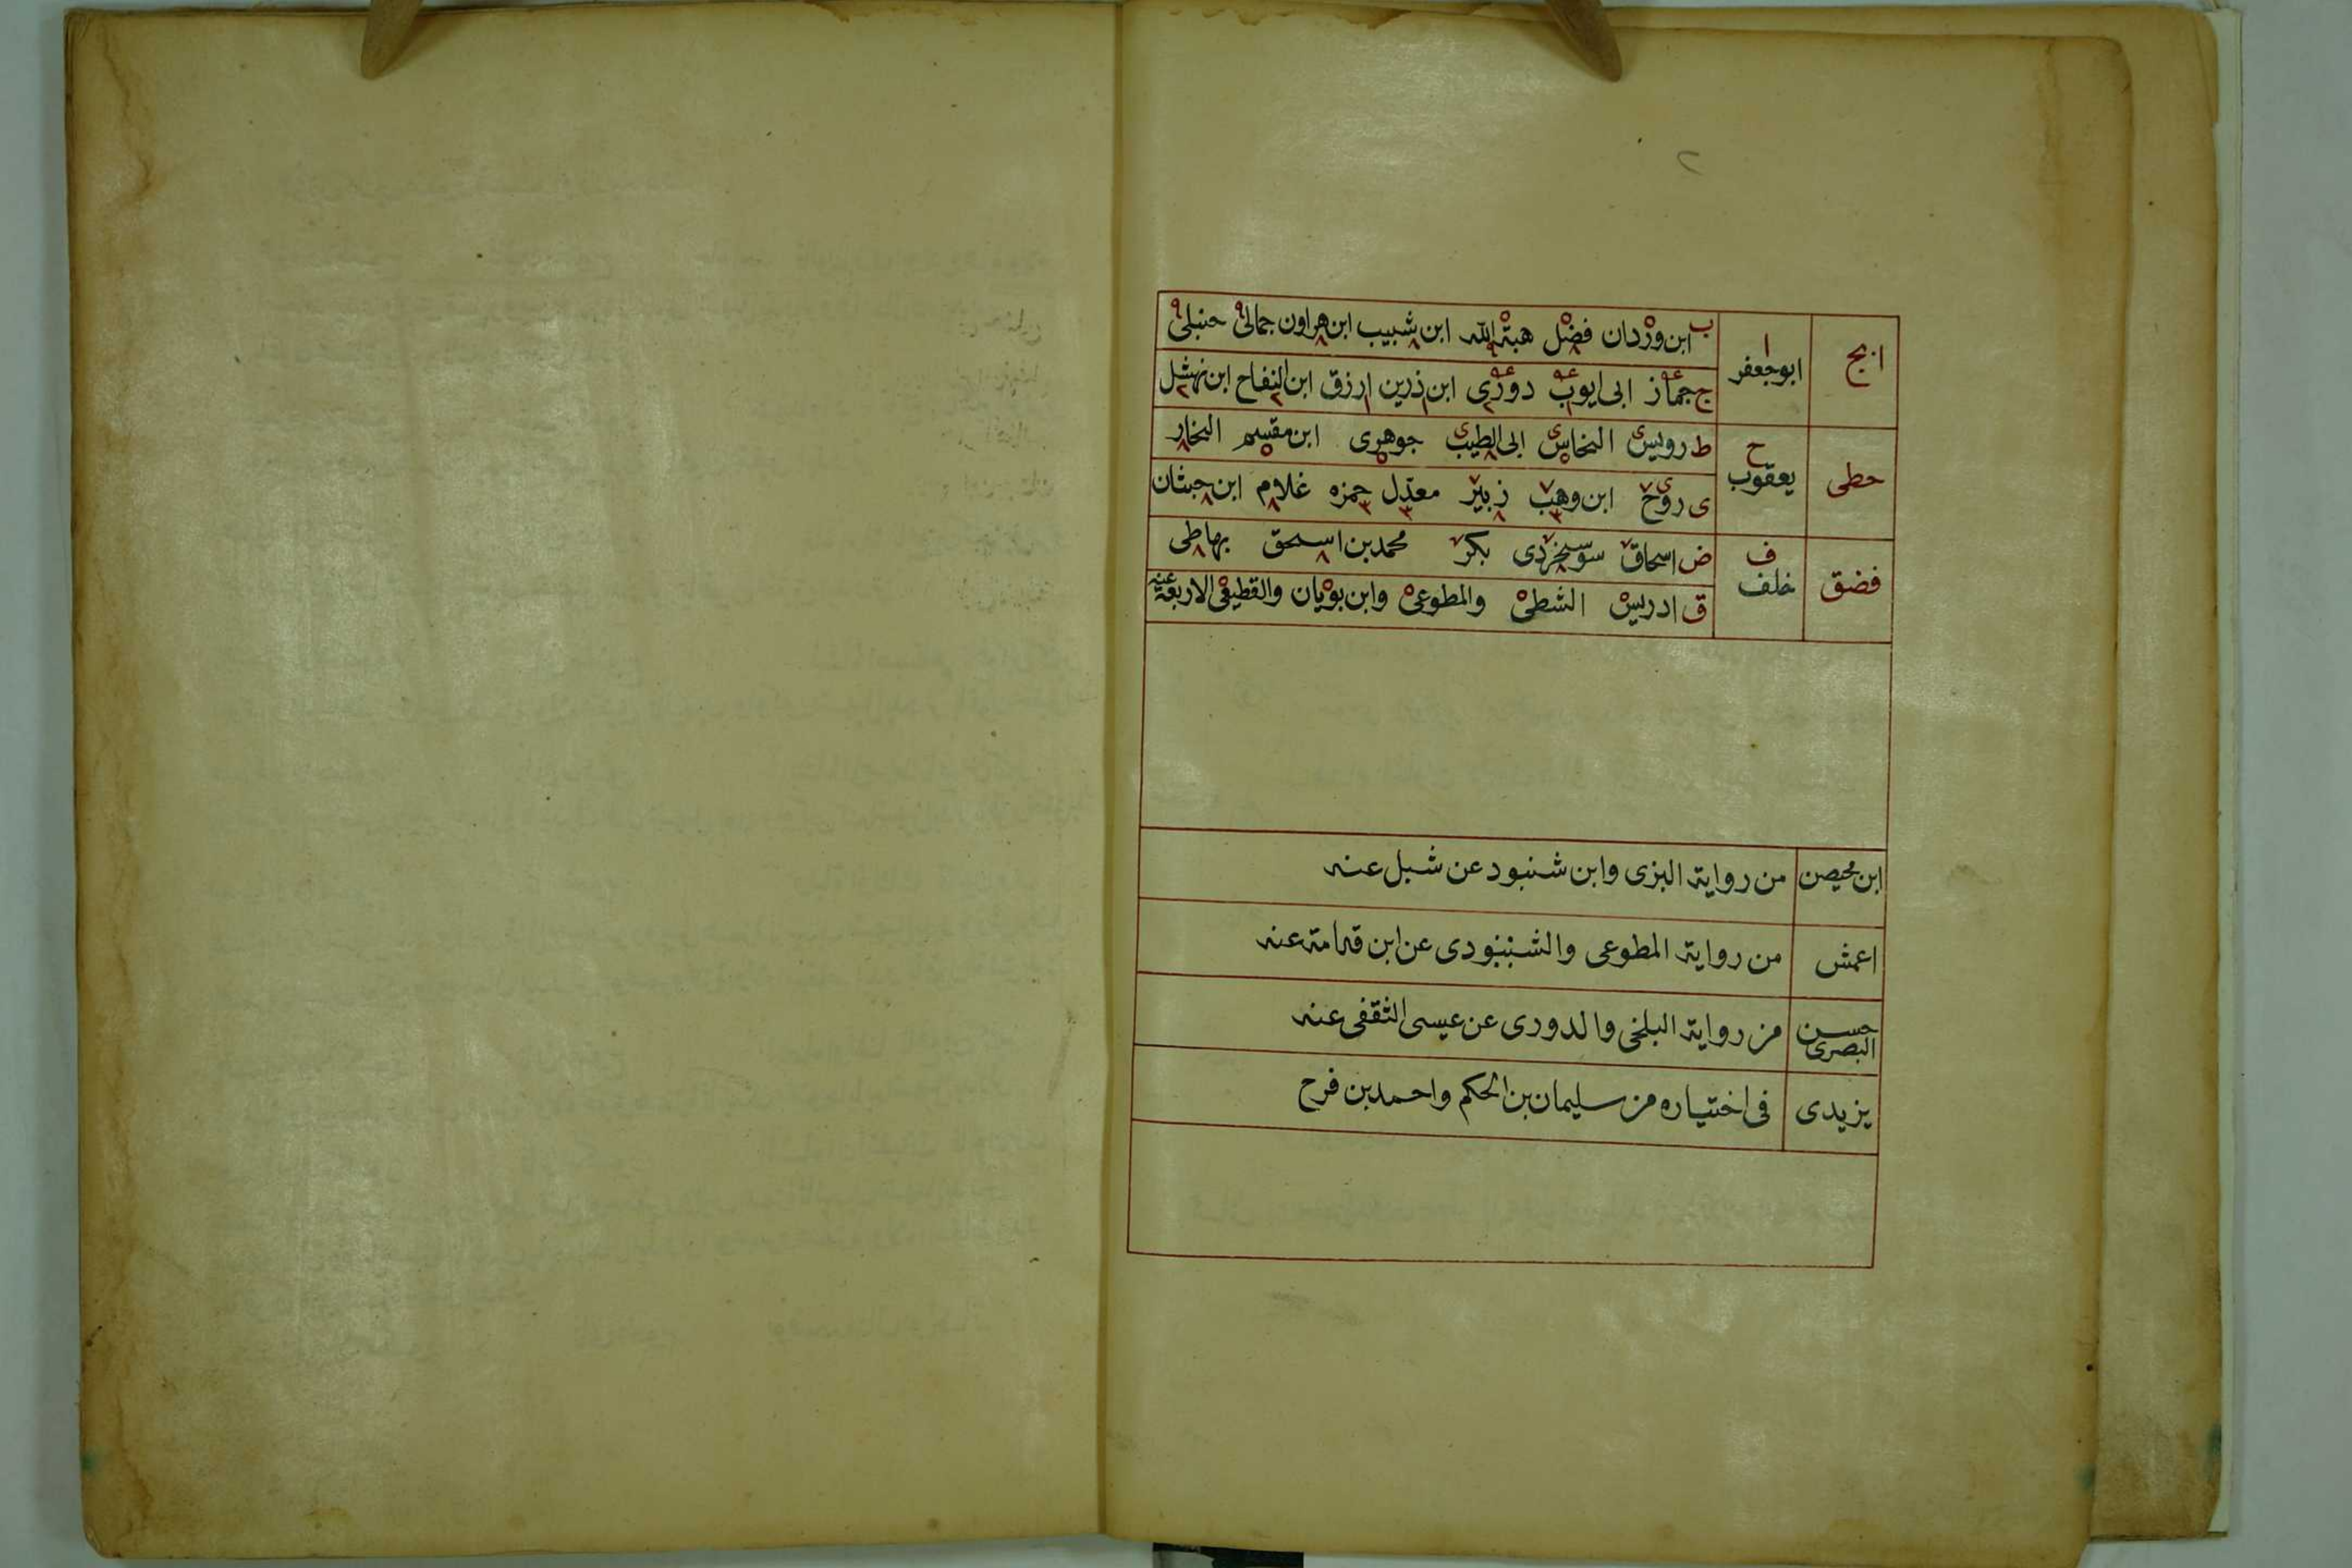 ٢
ابج
ا ابوجعفر
ب ابن وردان فضل هبة الله ابن شبيب ابن هراون جمالى حنبلى
ج جماز ابى ايوب دورى ابن زرين ارزق ابن النفاح ابن نهشل
حطى
ح يعقوب
ط رويس النخاس ابى الطيب جوهرى ابن مقسم النخار
ى روح ابن وهب زبير معدل حمزه غلام ابن حبشان
فضق
ف خلف
ض اسحاق سوسنجردى بكر محمد بن اسحق بهاطى
ق ادريس الشطى والمطوعى وابن بويان والقطيعى الاربعة عنه
ابن محيصن من رواية البزى وابن شنبود عن شبل عنه
اعمش من رواية المطوعى والشنبودى عن ابن قدامة عنه
حسن البصرى من رواية البلخى والدورى عن عيسى الثقفى عنه
يزيدى فى اختياره من سليمان بن الحكم واحمد بن فرح